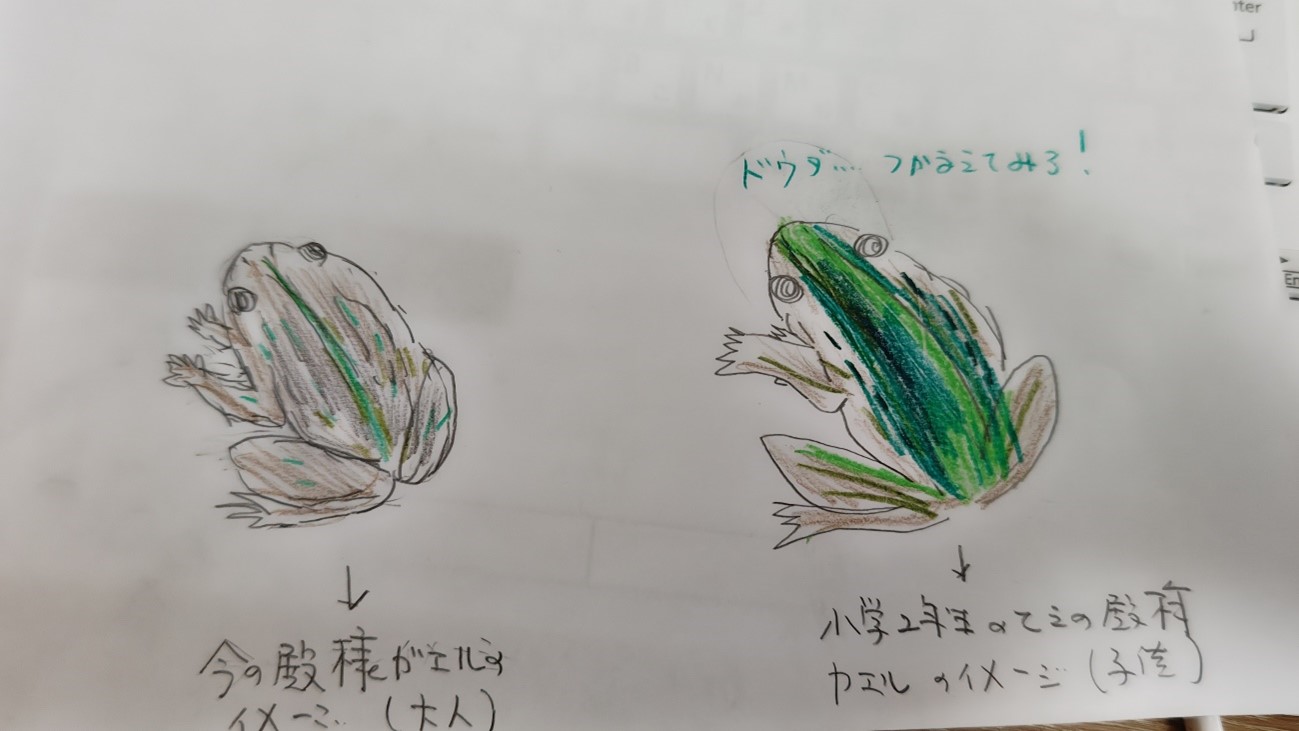 ドウダ… つかまえてみろ!
今の殿様がエルの
イメージ (大人)
小学2年生のときの殿様
カエルのイメージ (子供)
nter